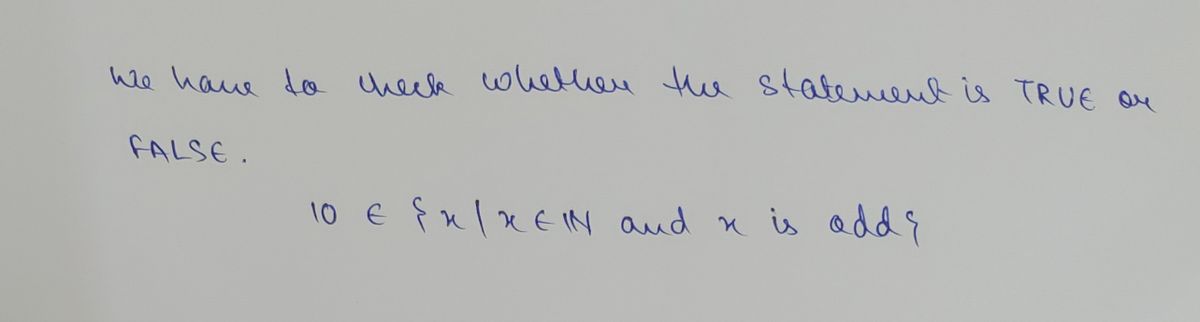 We have to check whether the statement is TRUE or
FALSE.
10 ∈ {x/x ∈ ℕ and x is odd}